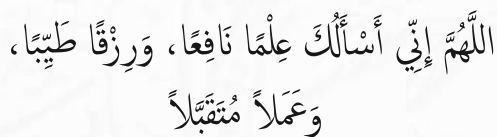 اللَّهُمَّ إِنِّي أَسْأَلُكَ عِلْمًا نَافِعًا، وَرِزْقًا طَيِّبًا،
وَعَمَلاً مُتَقَبَّلاً